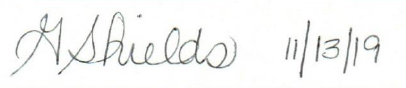 G Shields 11/13/19